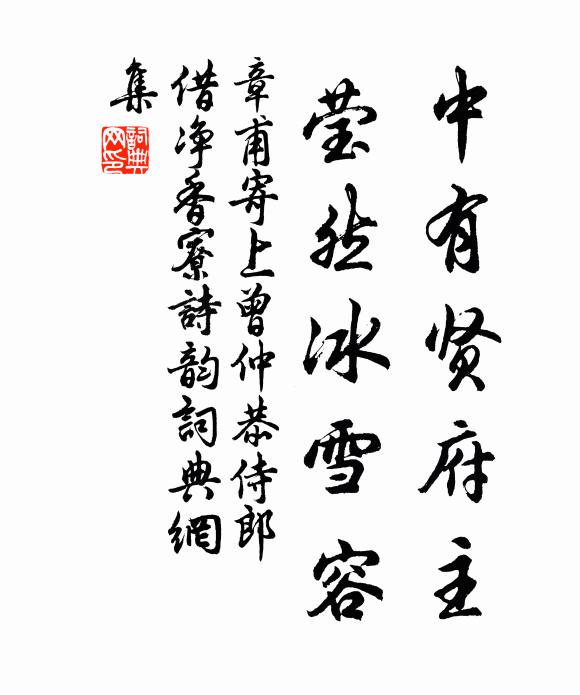 中有贤府主
莹然冰雪容
章甫寄上曾仲恭侍郎
借净香寮詩韵詞典網
集
詞典
网印